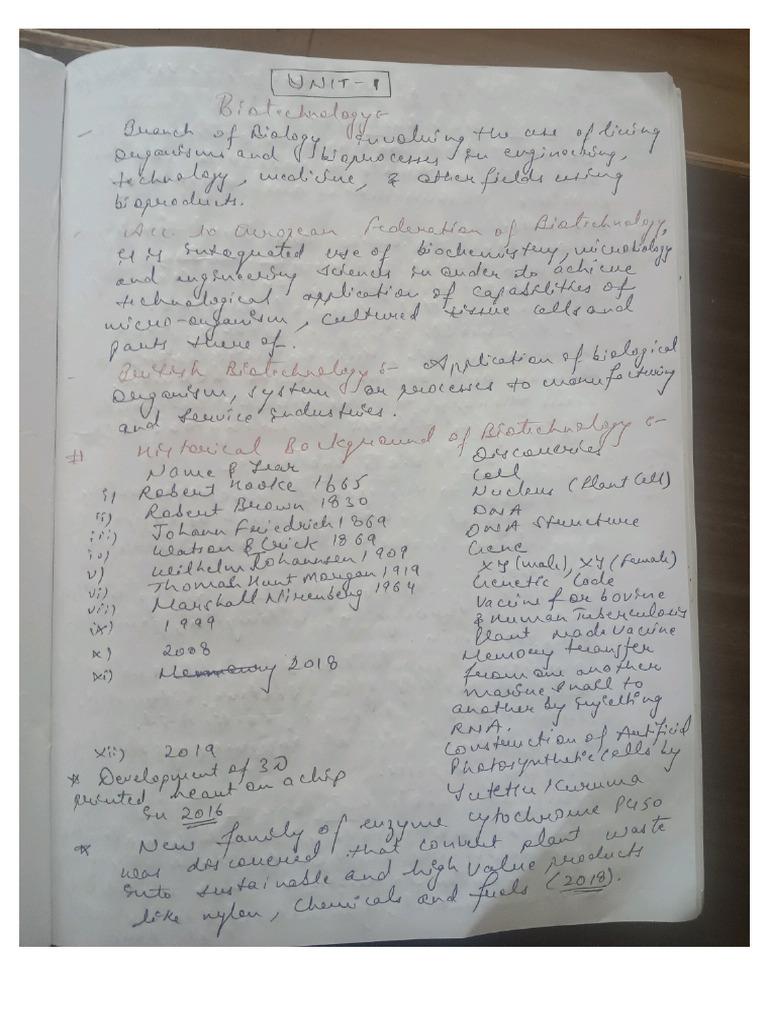 UNIT-1
Biotechnology:-
- Branch of Biology involving the use of living
organisms and bioprocesses in engineering,
technology, medicine, & other fields using
bioproducts.
- Acc. to European Federation of Biotechnology,
it is integrated use of biochemistry, microbiology
and engineering sciences in order to achieve
technological application of capabilities of
micro-organism, cultured tissue cells and
parts there of.
- British Biotechnology:- Application of biological
organism, system or processes to manufacturing
and service industries.
# Historical Background of Biotechnology:-
Name & Year Discoveries
i) Robert Hooke 1665 Cell
ii) Robert Brown 1830 Nucleus (Plant Cell)
iii) Johann Friedrich 1869 DNA
iv) Watson & Crick 1869 DNA Structure
v) Wilhelm Johannsen 1909 Gene
vi) Thomah Hunt Morgan 1919 XY (male), XY (female)
vii) Marshall Nirenberg 1964 Genetic Code
ix) 1999 Vaccine for bovine
& Human Tuberculosis
x) 2008 Plant made vaccine
xi) 2018 Memory transfer
from one another
marine snail to
another by injecting
RNA.
xii) 2019 Construction of Artificial
Photosynthetic cells by
Kuruma
* Development of 3D
printed heart on a chip
in 2016
* New family of enzyme cytochrome P450
was discovered that convert plant waste
into sustainable and high value products
like nylon, chemicals and fuels (2018).